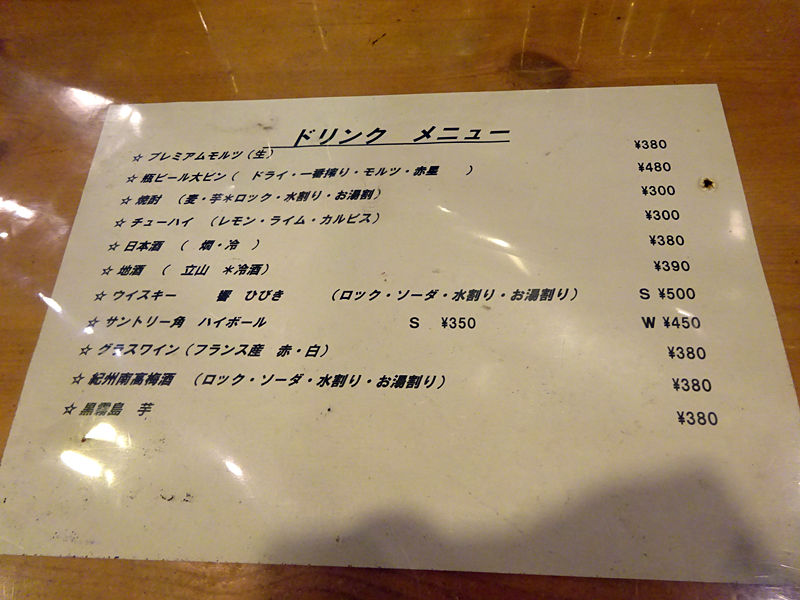 ドリンク メニュー
☆ プレミアムモルツ(生) ¥380
☆ 瓶ビール大ビン( ドライ・一番搾り・モルツ・赤星 ) ¥480
☆ 焼酎 (麦・芋*ロック・水割り・お湯割) ¥300
☆ チューハイ (レモン・ライム・カルピス) ¥300
☆ 日本酒 ( 燗・冷 ) ¥380
☆ 地酒 ( 立山 *冷酒) ¥390
☆ ウイスキー 響 ひびき (ロック・ソーダ・水割り・お湯割り) S ¥500
☆ サントリー角 ハイボール S ¥350 W ¥450
☆ グラスワイン(フランス産 赤・白) ¥380
☆ 紀州南高梅酒 (ロック・ソーダ・水割り・お湯割り) ¥380
☆ 黒霧島 芋 ¥380